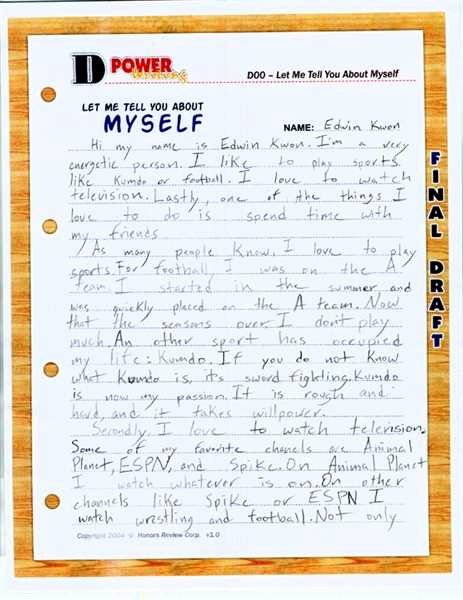 D POWER
Writing
D00 – Let Me Tell You About Myself
LET ME TELL YOU ABOUT
MYSELF
NAME: Edwin Kwon
Hi my name is Edwin Kwon. I'm a very
energetic person. I like to play sports
like Kumdo or football. I love to watch
television. Lastly, one of the things I
love to do is spend time with
my friends
As many people know, I love to play
sports. For football, I was on the A
team I started in the summer, and
was quickly placed on the A team. Now
that the seasons over I don't play
much. An other sport has occupied
my life: Kumdo. If you do not know
what Kumdo is, its sword fighting. Kumdo
is now my passion. It is rough and
hard, and it takes willpower.
Secondly, I love to watch television.
Some of my favorite chanels are Animal
Planet, ESPN, and Spike. On Animal Planet
I watch whatever is on. On other
channels like Spike or ESPN I
watch wrestling and football. Not only
Copyright 2004 © Honors Review Corp. v1.0
FINAL DRAFT